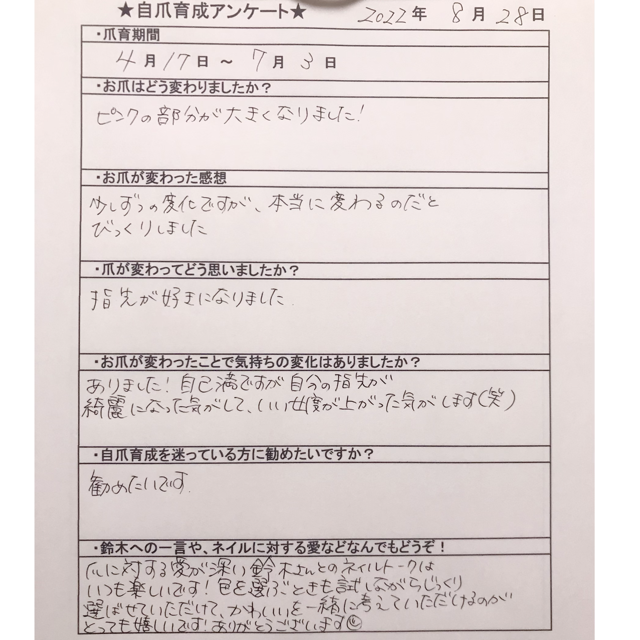 ★自爪育成アンケート★ 2022年 8月 28日
・爪育期間
4月17日 ～ 7月3日
・お爪はどう変わりましたか？
ピンクの部分が大きくなりました！
・お爪が変わった感想
少しずつの変化ですが、本当に変わるのだと
びっくりしました
・爪が変わってどう思いましたか？
指先が好きになりました.
・お爪が変わったことで気持ちの変化はありましたか？
ありました！自己満ですが自分の指先が
綺麗になった気がして、いい女度が上がった気がします(笑)
・自爪育成を迷っている方に勧めたいですか？
勧めたいです.
・鈴木への一言や、ネイルに対する愛などなんでもどうぞ！
爪に対する愛が深い鈴木さんとのネイルトークは
いつも楽しいです！色を選ぶときも試しながらじっくり
選ばせていただけて、かわいいを一緒に考えていただけるのが
とっても嬉しいです！ありがとうございます